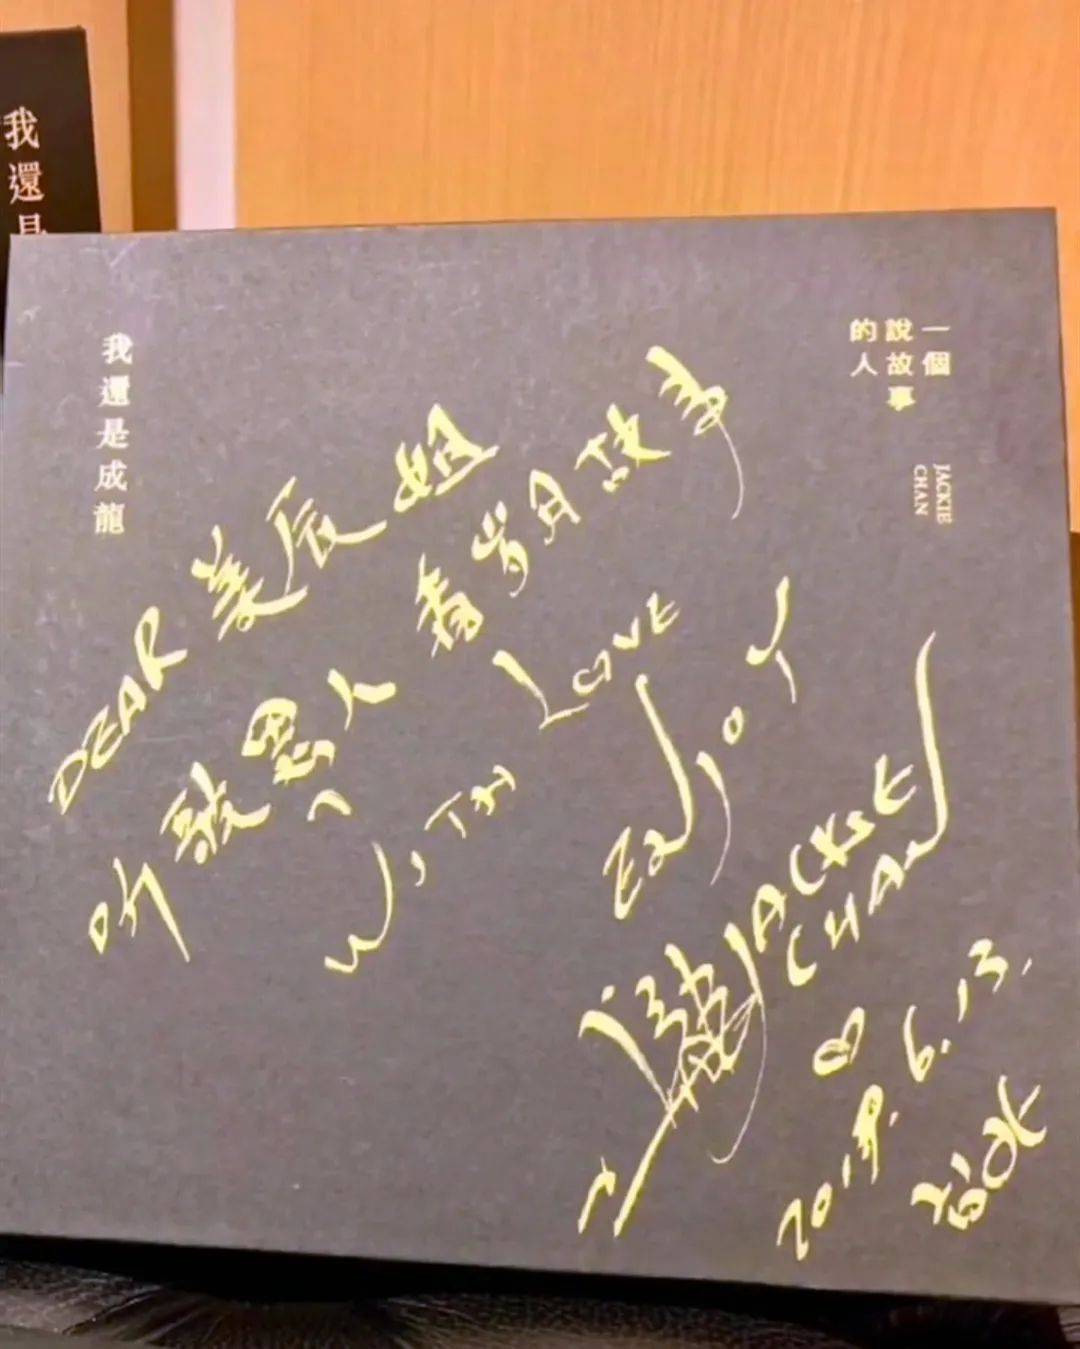 我還是
我還是成龍
一個
說故事
的人
JACKIE
CHAN
DEAR 美辰姐
听歌思人 看岁月故事
WITH LOVE
ENJOY
成龍 JACKIE
CHAN
6.13.